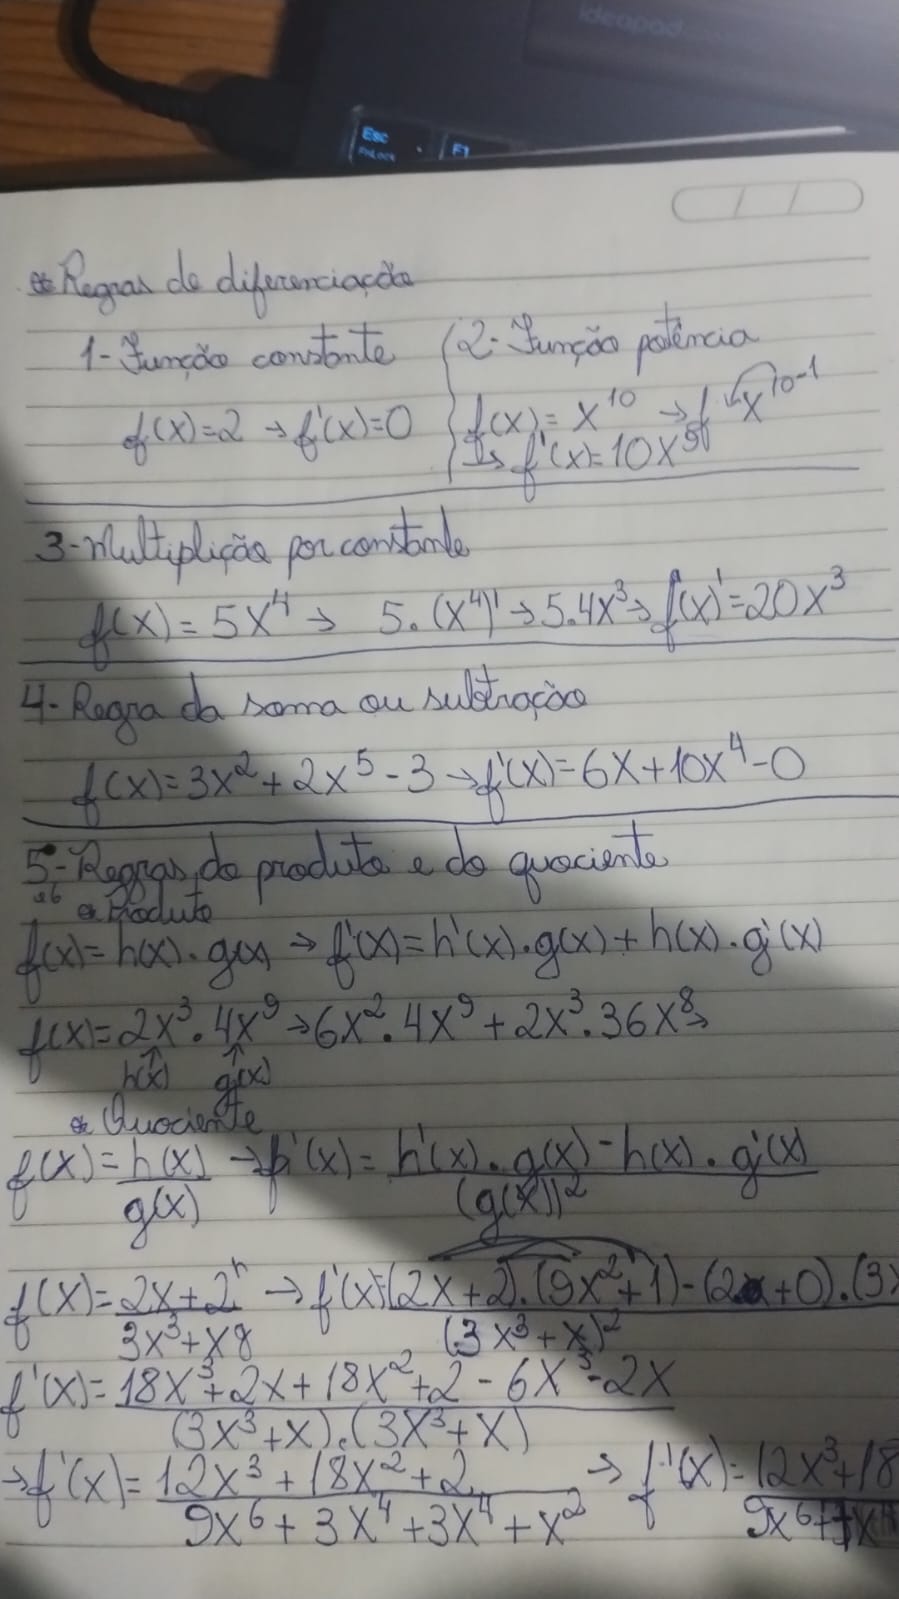 ideapad
Esc
FnLock
F1
Regras de diferenciação
1- Função constante
f(x)=2 → f'(x)=0
2- Função potência
f(x)= x^10 → x^10-1
↳ f'(x)=10x^9
3- Multiplição por constante
f(x)=5x^4 → 5.(x^4)' → 5.4x^3 → f(x)'=20x^3
4- Regra da soma ou subtração
f(x)=3x^2+2x^5-3 → f'(x)=6x+10x^4-0
5- Regras do produto e do quociente
Produto
f(x)=h(x).g(x) → f'(x)=h'(x).g(x)+h(x).g'(x)
f(x)=2x^3.4x^9 → 6x^2.4x^9+2x^3.36x^8 →
h(x) g(x)
Quociente
f(x)=h(x)/g(x) → f'(x)= h'(x).g(x)-h(x).g'(x)/(g(x))^2
f(x)=2x+2/3x^3+x → f'(x)=(2x+2).(9x^2+1)-(2+0).(3x/(3x^3+x)^2
f'(x)=18x^3+2x+18x^2+2-6x^3-2x/(3x^3+x).(3x^3+x)
→ f'(x)=12x^3+18x^2+2/9x^6+3x^4+3x^4+x^2 → f'(x)=12x^3+18/9x^6+